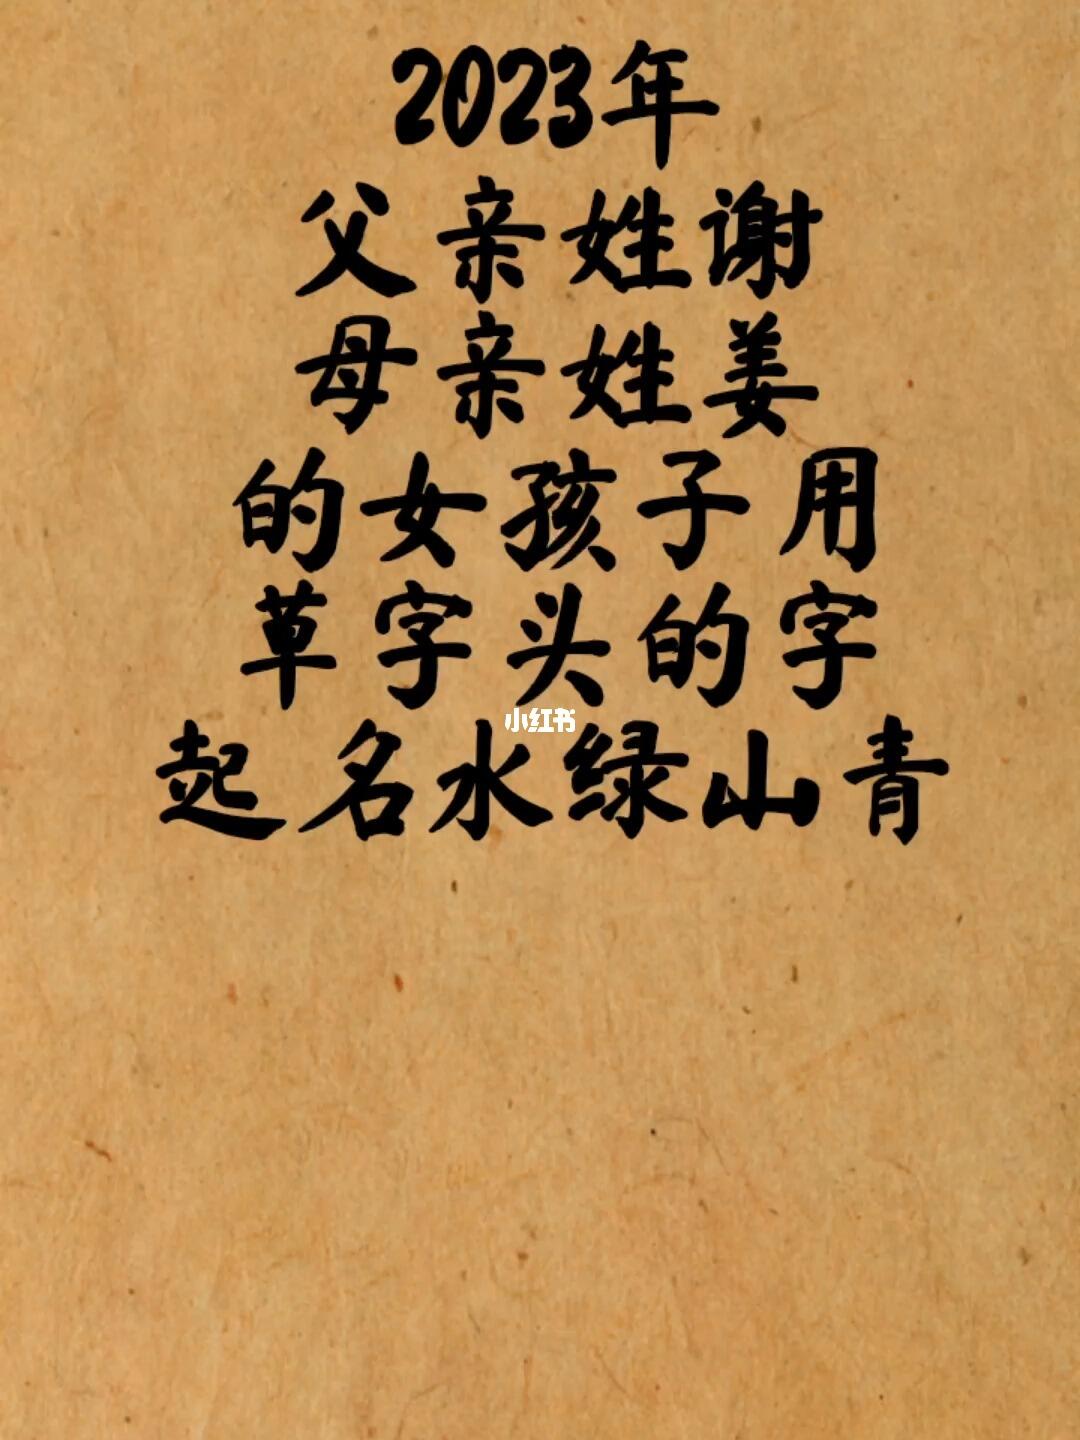 2023年
父亲姓谢
母亲姓姜
的女孩子用
草字头的字
小红书
起名水绿山青